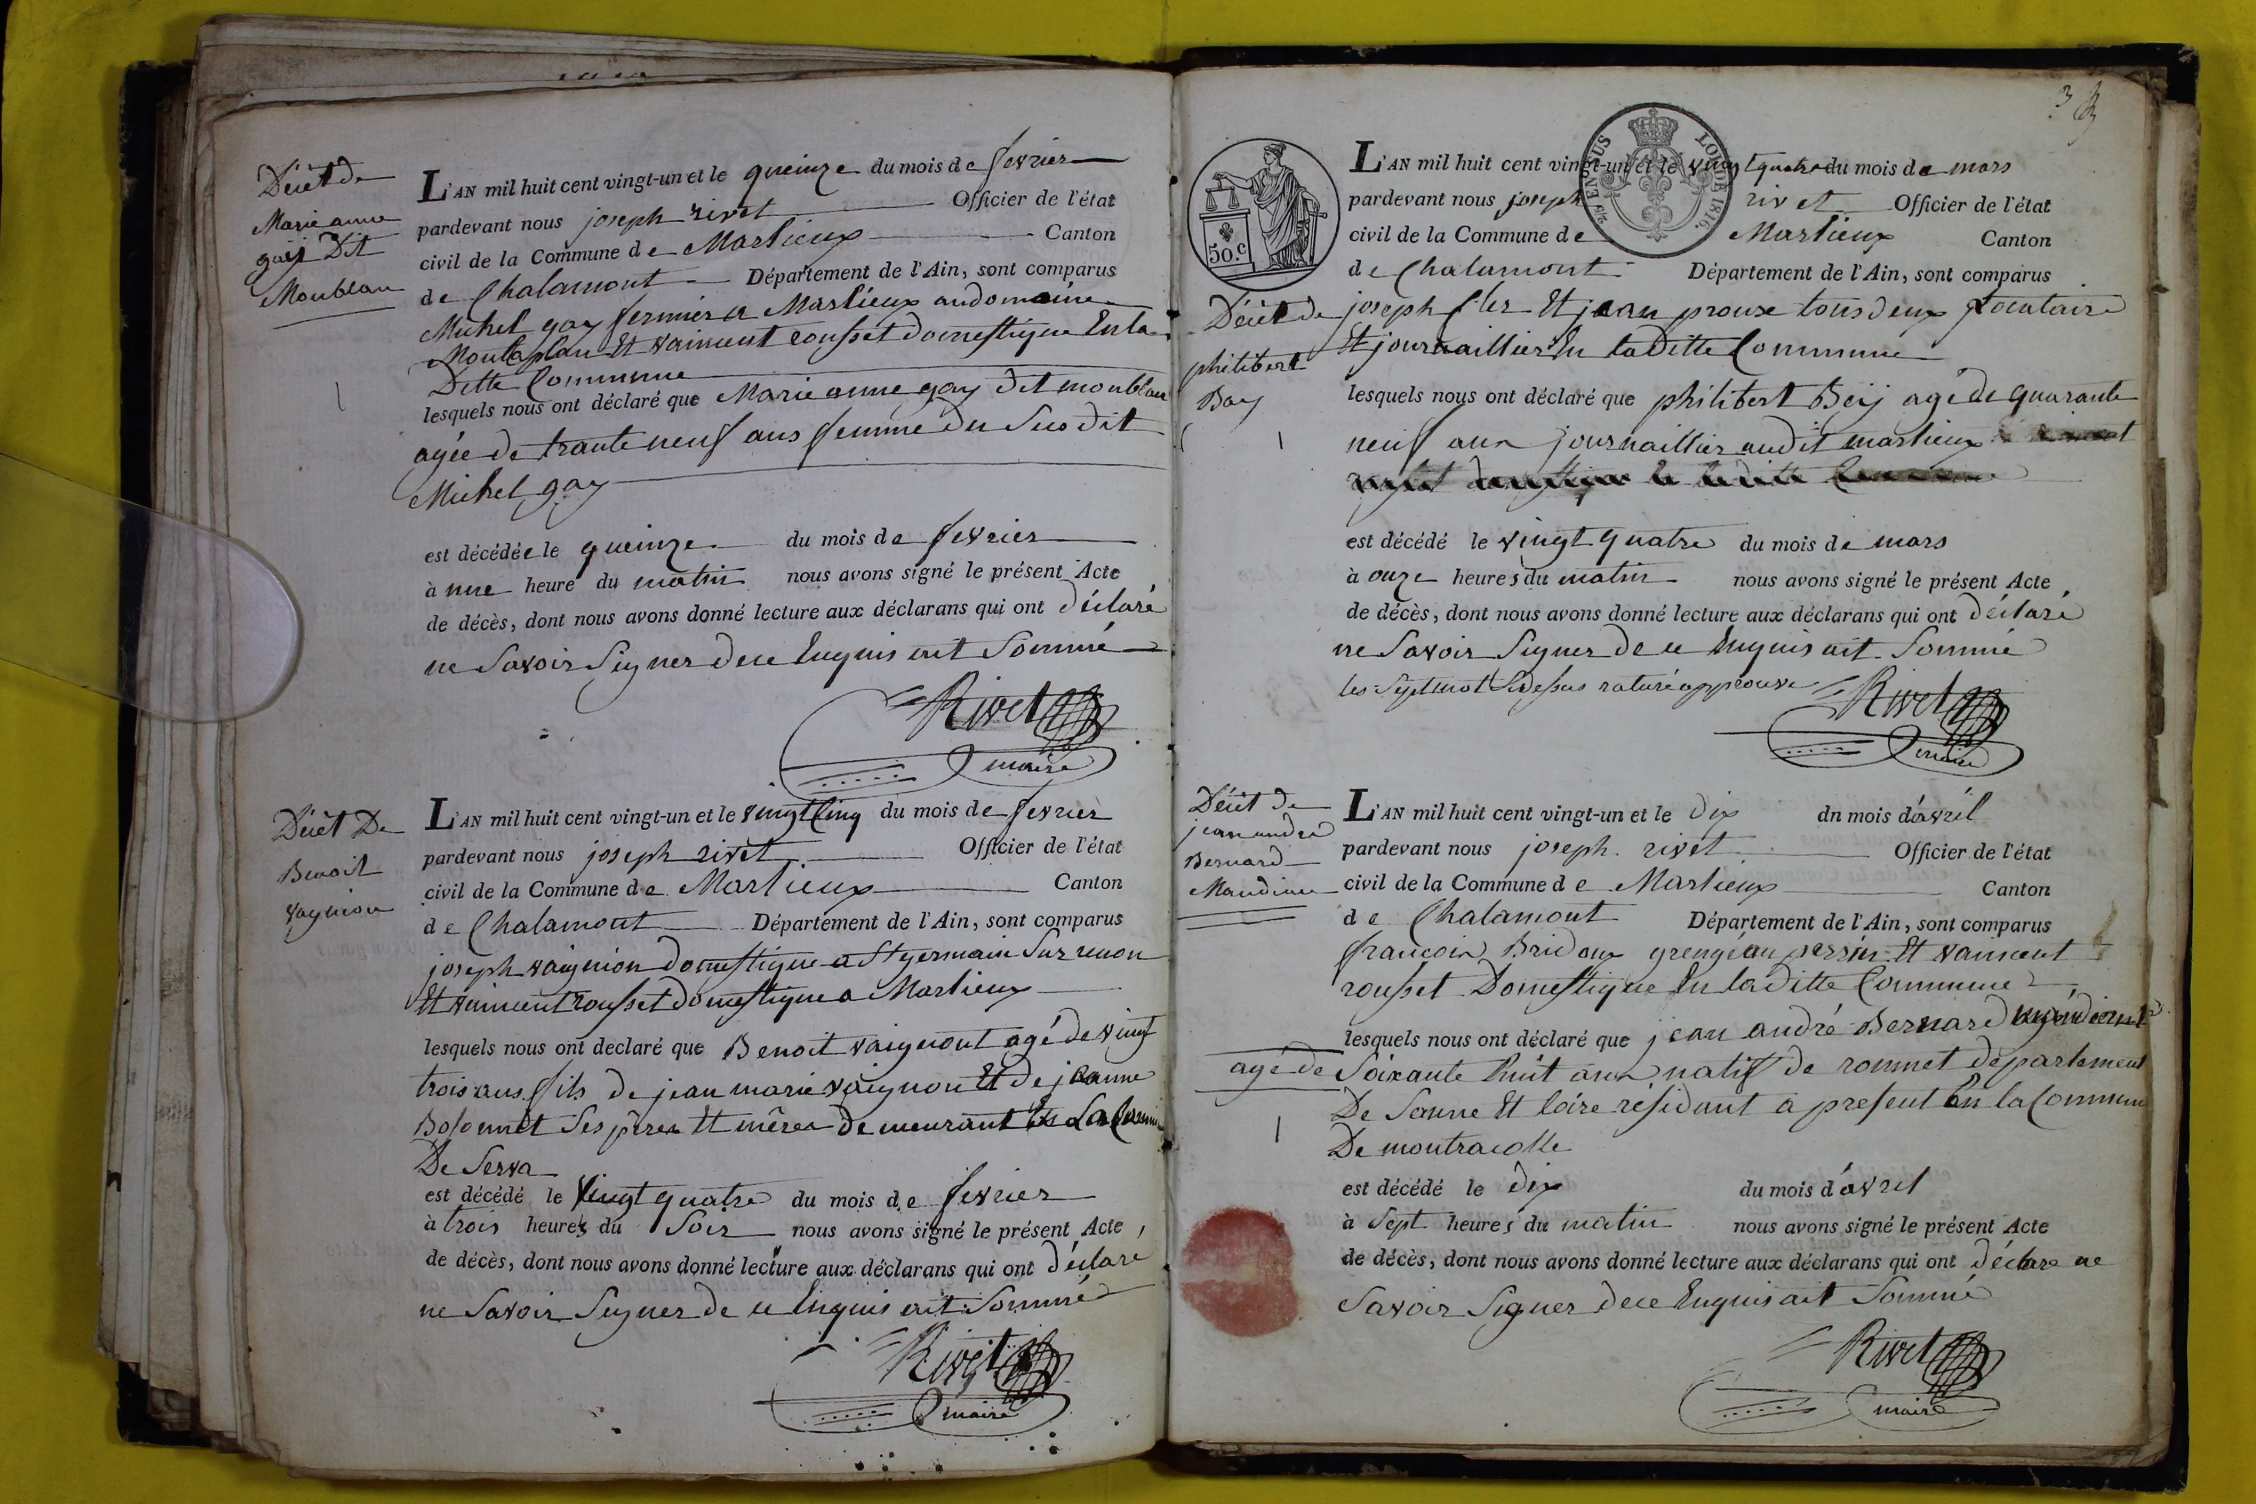 Décèt de
Marie anne
gaÿ Dit
Moublan
L'AN mil huit cent vingt-un et le queinze du mois de fevrier
pardevant nous joseph rivet Officier de l'état
civil de la Commune de Marlieux Canton
de Chalamont Département de l'Ain, sont comparus
Michel gay fermier a Marlieux audomaine
Moutaplan Et vaincent rousset domestique En la
Ditte Commune
lesquels nous ont déclaré que Marie anne gay dit moublan
agée de trante neuf ans femme du Susdit
Michel gay
est décédée le queinze du mois de fevrier
à une heure du matin nous avons signé le présent Acte
de décès, dont nous avons donné lecture aux déclarans qui ont déclaré
ne Savoir Signer de ce Enquis ait Sommé
Rivet
maire
Décèt De
Benoit
vaignion
L'AN mil huit cent vingt-un et le vingt Cinq du mois de fevrier
pardevant nous joseph rivet Officier de l'état
civil de la Commune de Marlieux Canton
de Chalamont Département de l'Ain, sont comparus
joseph vaignion domestique a St germain Sur renon
Et vaincent rousset domestique a Marlieux
lesquels nous ont declaré que Benoit vaigniont agé de vingt
trois ans fils de jean marie vaignion Et de jeanne
Bosonnet Ses pères Et mères demeurant
De Serva
est décédé le vingt quatre du mois de fevrier
à trois heures du Soir nous avons signé le présent Acte
de décès, dont nous avons donné lecture aux déclarans qui ont déclaré
ne Savoir Signer de ce Enquis ait Sommé
Rivet
maire
3
50.c
EN SUS
LOI DE 1816.
Décèt de
philibert
Bay
L'AN mil huit cent vingt-un et le vingt quatre du mois de mars
pardevant nous joseph rivet Officier de l'état
civil de la Commune de Marlieux Canton
de Chalamont Département de l'Ain, sont comparus
joseph Et jean proux tous deux locataire
Et journaillier En la Ditte Commune
lesquels nous ont déclaré que philibert Beÿ agé de quarante
neuf ans journaillier audit marlieux
est décédé le vingt quatre du mois de mars
à onze heures du matin nous avons signé le présent Acte
de décès, dont nous avons donné lecture aux déclarans qui ont déclaré
ne Savoir Signer de ce Enquis ait Sommé
les Sept mot Sidessus raturé approuve
Rivet
maire
Décèt de
jean andré
Bernard
Mandian
L'AN mil huit cent vingt-un et le dix dn mois d'avril
pardevant nous joseph rivet Officier de l'état
civil de la Commune de Marlieux Canton
de Chalamont Département de l'Ain, sont comparus
francois Bridon grengé au persin Et vaincent
rousset Domestique En la ditte Commune
lesquels nous ont déclaré que jean andré Bernard
agé de Soixante huit ans natif de romnet département
De Saune Et loire résidant a present En la Commune
De montracolle
est décédé le dix du mois d'avril
à Sept heures du matin nous avons signé le présent Acte
de décès, dont nous avons donné lecture aux déclarans qui ont déclare ne
Savoir Signer de ce Enquis ait Sommé
Rivet
maire